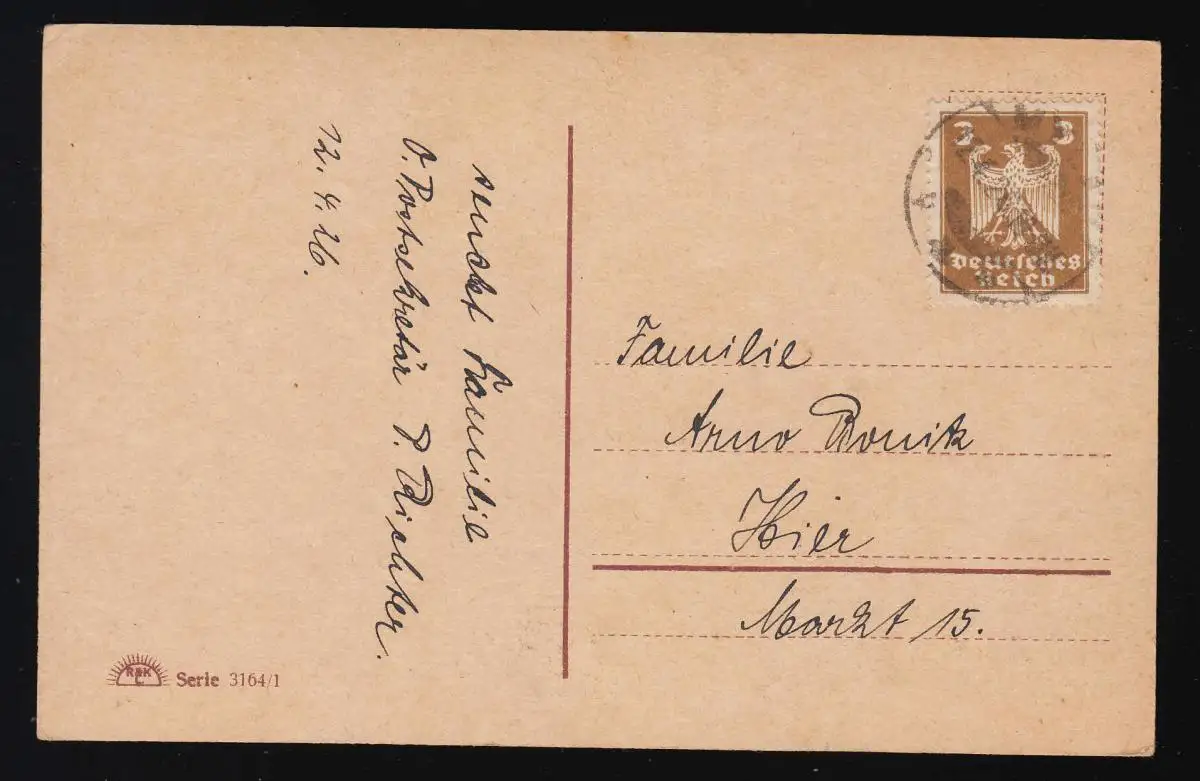 sendet Familie
O. Postsekretär P. Richter.
12. 4. 26.
3 3
Deutsches
Reich
Familie
Arno Bonik
Hier
Markt 15.
R&K
L
Serie 3164/1